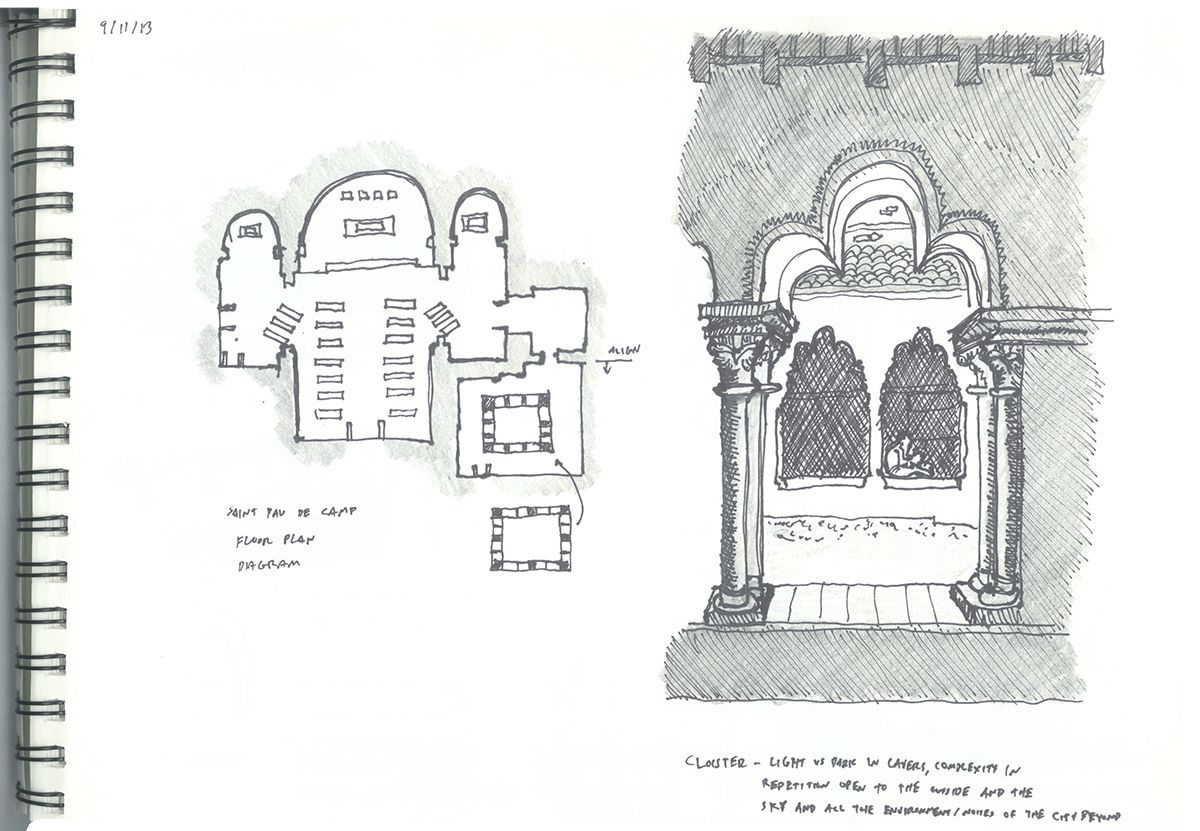 9/11/13
ALIGN
SAINT PAU DE CAMP
FLOOR PLAN
DIAGRAM
CLOISTER - LIGHT VS DARK IN LAYERS, COMPLEXITY IN
REPETITION OPEN TO THE INSIDE AND THE
SKY AND ALL THE ENVIRONMENT/NOISES OF THE CITY BEYOND